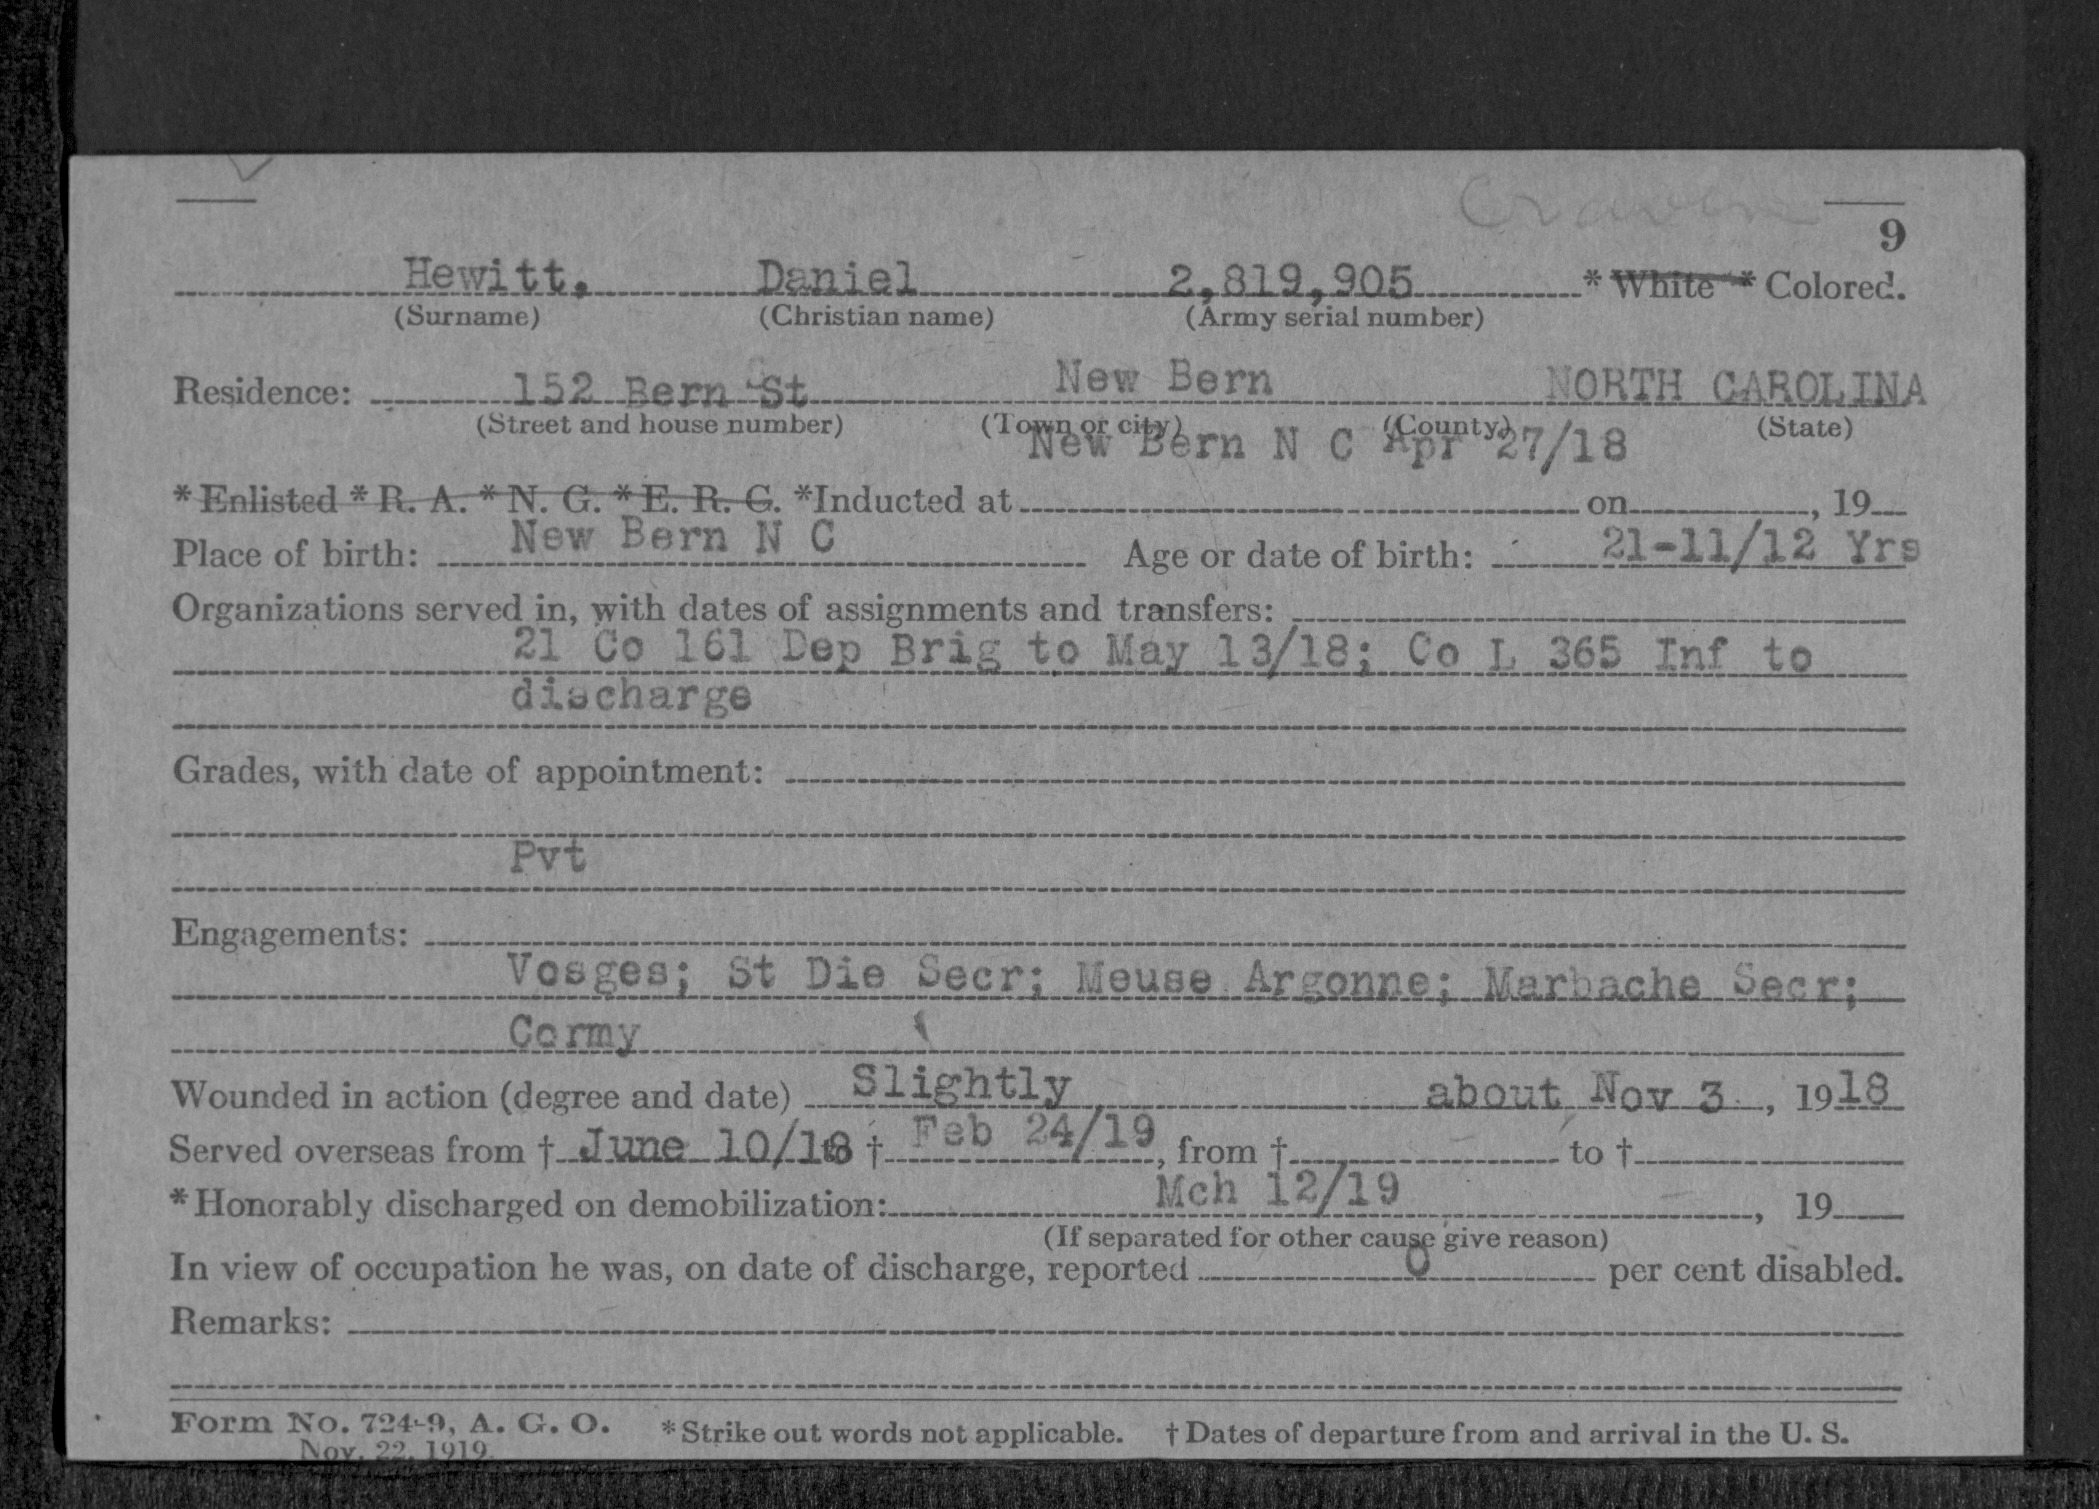 Craven
9
Hewitt, Daniel 2,819,905 * White * Colored.
(Surname) (Christian name) (Army serial number)
Residence: 152 Bern St New Bern NORTH CAROLINA
(Street and house number) (Town or city) (County) (State)
New Bern N C Apr 27/18
*Enlisted *R. A. *N. G. *E. R. C. *Inducted at on , 19
Place of birth: New Bern N C Age or date of birth: 21-11/12 Yrs
Organizations served in, with dates of assignments and transfers:
21 Co 161 Dep Brig to May 13/18; Co L 365 Inf to
discharge
Grades, with date of appointment:
Pvt
Engagements:
Vosges; St Die Secr; Meuse Argonne; Marbache Secr;
Cormy
Wounded in action (degree and date) Slightly about Nov 3 , 1918
Served overseas from † June 10/18 to † Feb 24/19, from † to †
*Honorably discharged on demobilization: Mch 12/19 , 19
(If separated for other cause give reason)
In view of occupation he was, on date of discharge, reported 0 per cent disabled.
Remarks:
Form No. 724-9, A. G. O. *Strike out words not applicable. † Dates of departure from and arrival in the U. S.
Nov. 22, 1919.